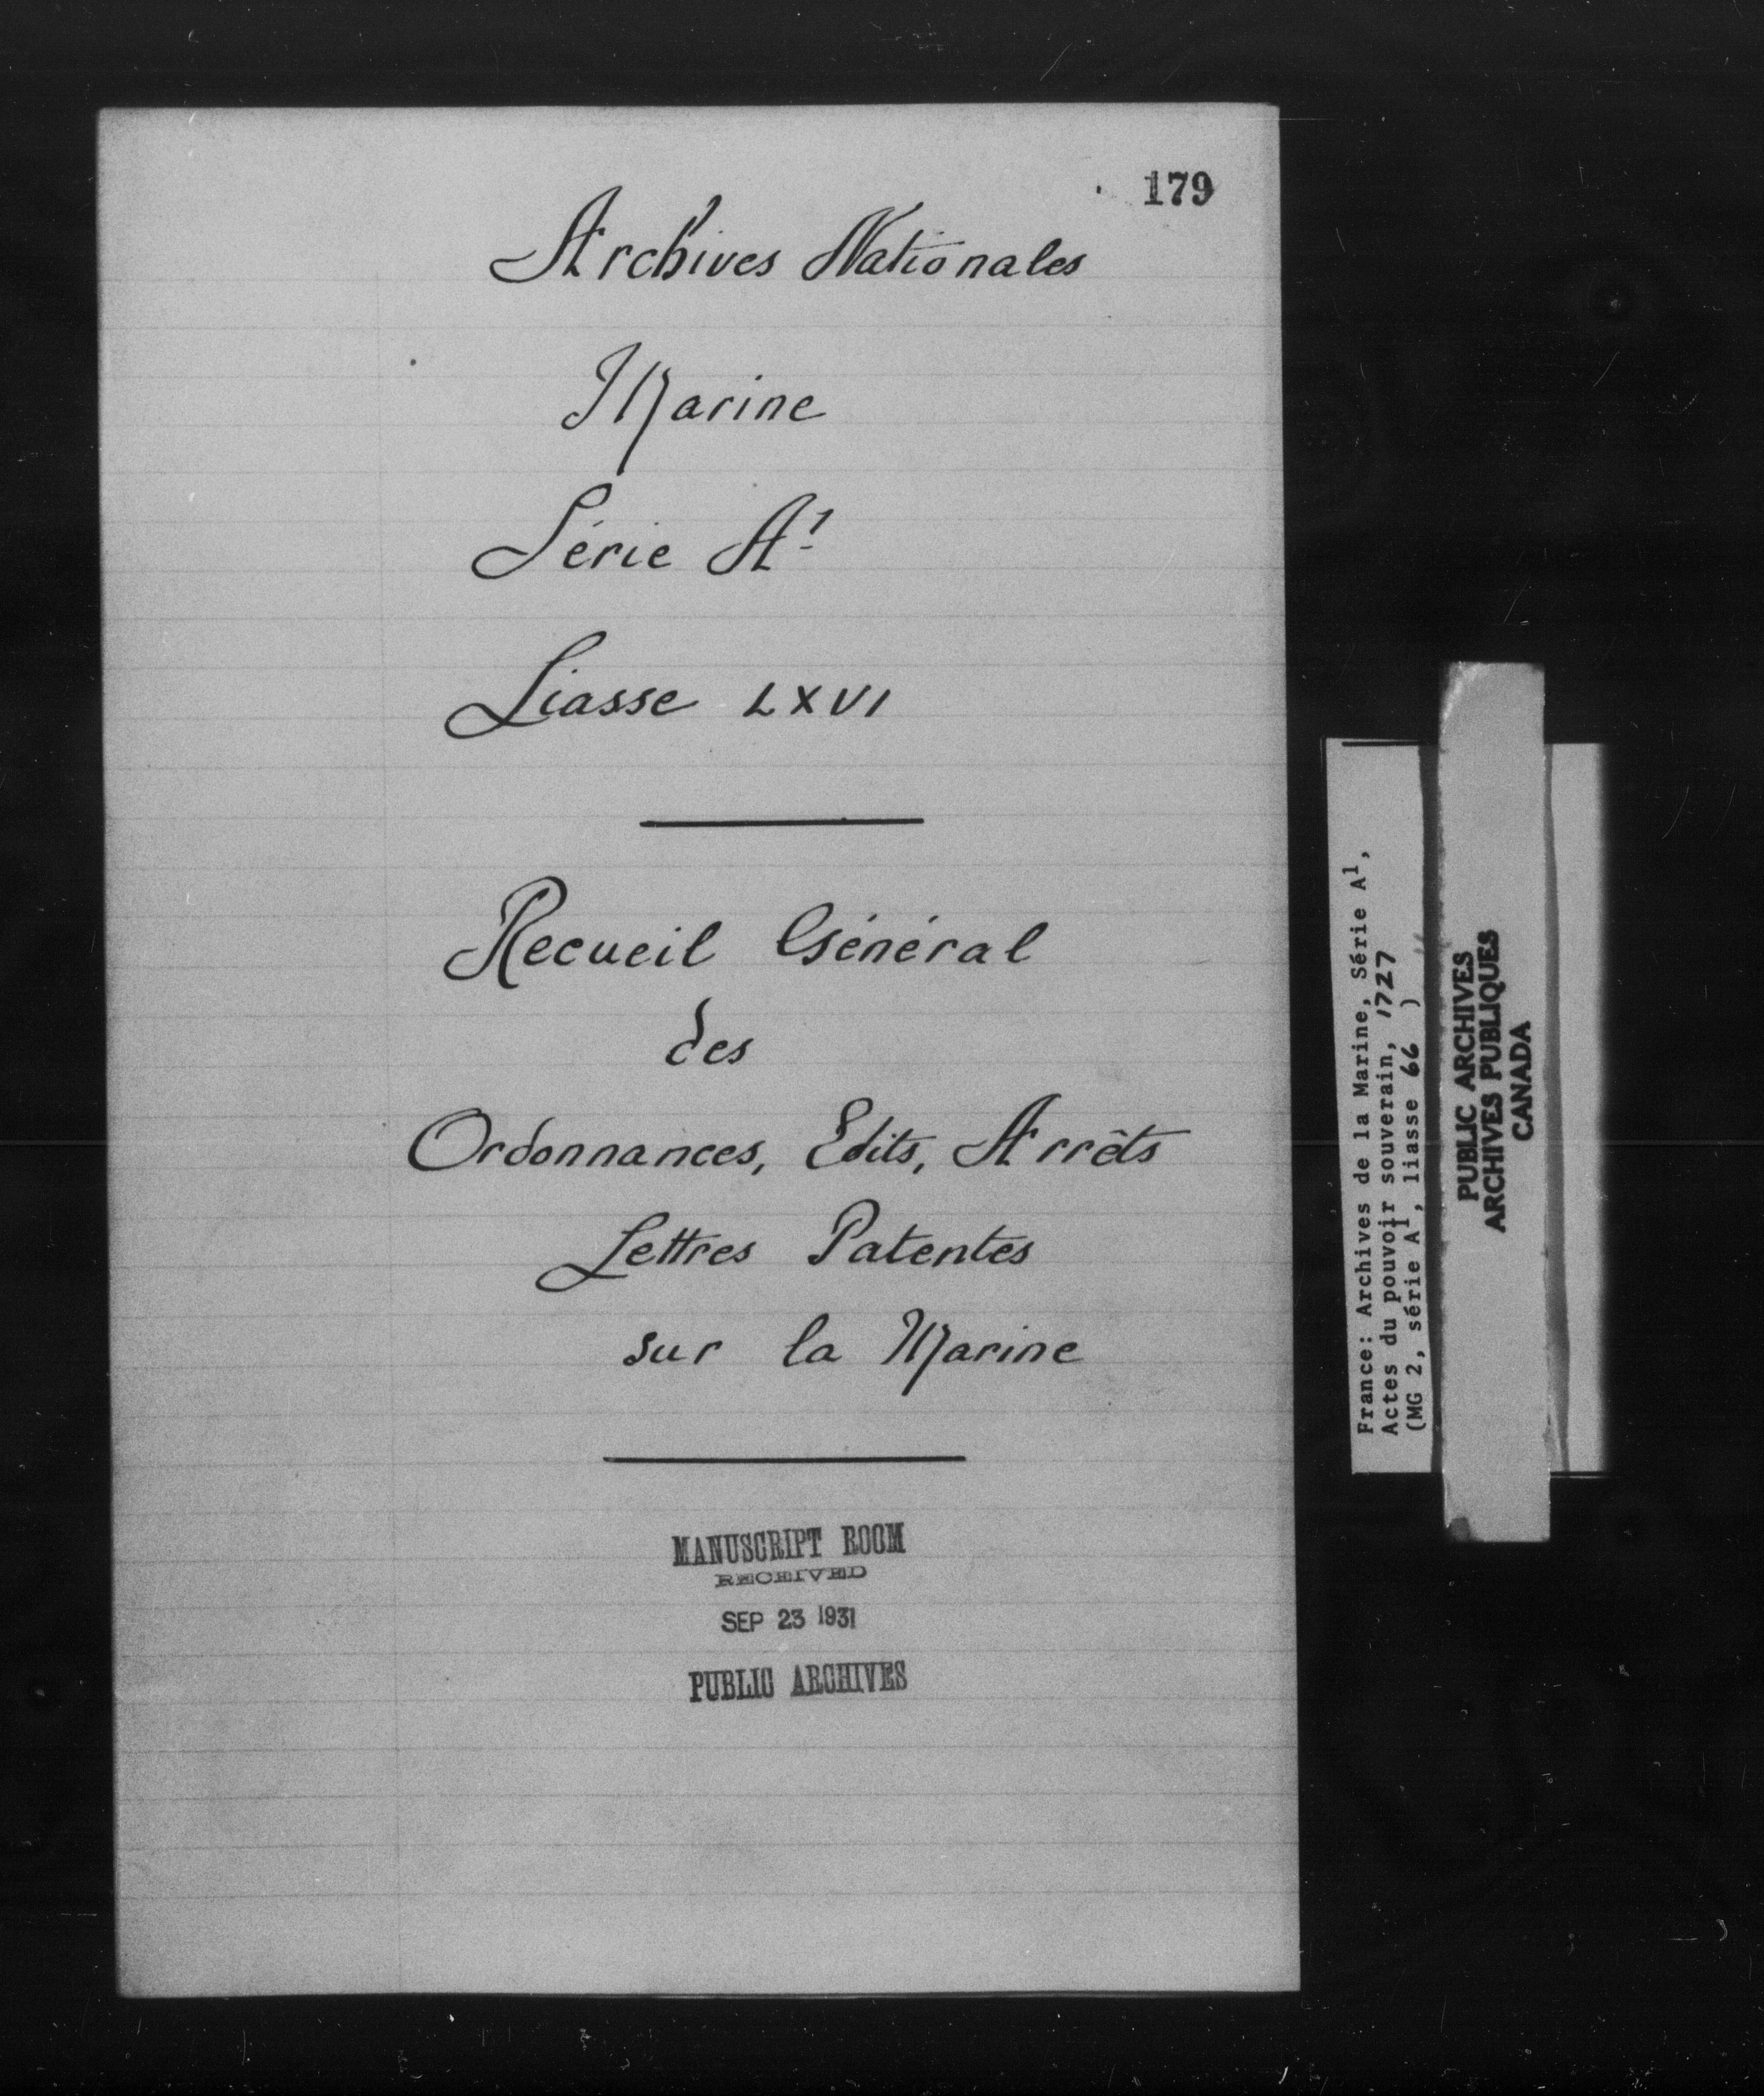 179
Archives Nationales
Marine
Série A¹
Liasse LXVI
Recueil Général
des
Ordonnances, Edits, Arrêts
Lettres Patentes
sur la Marine
MANUSCRIPT ROOM
RECEIVED
SEP 23 1931
PUBLIC ARCHIVES
France: Archives de la Marine, Série A¹,
Actes du pouvoir souverain, 1727
(MG 2, série A¹, liasse 66 )
PUBLIC ARCHIVES
ARCHIVES PUBLIQUES
CANADA